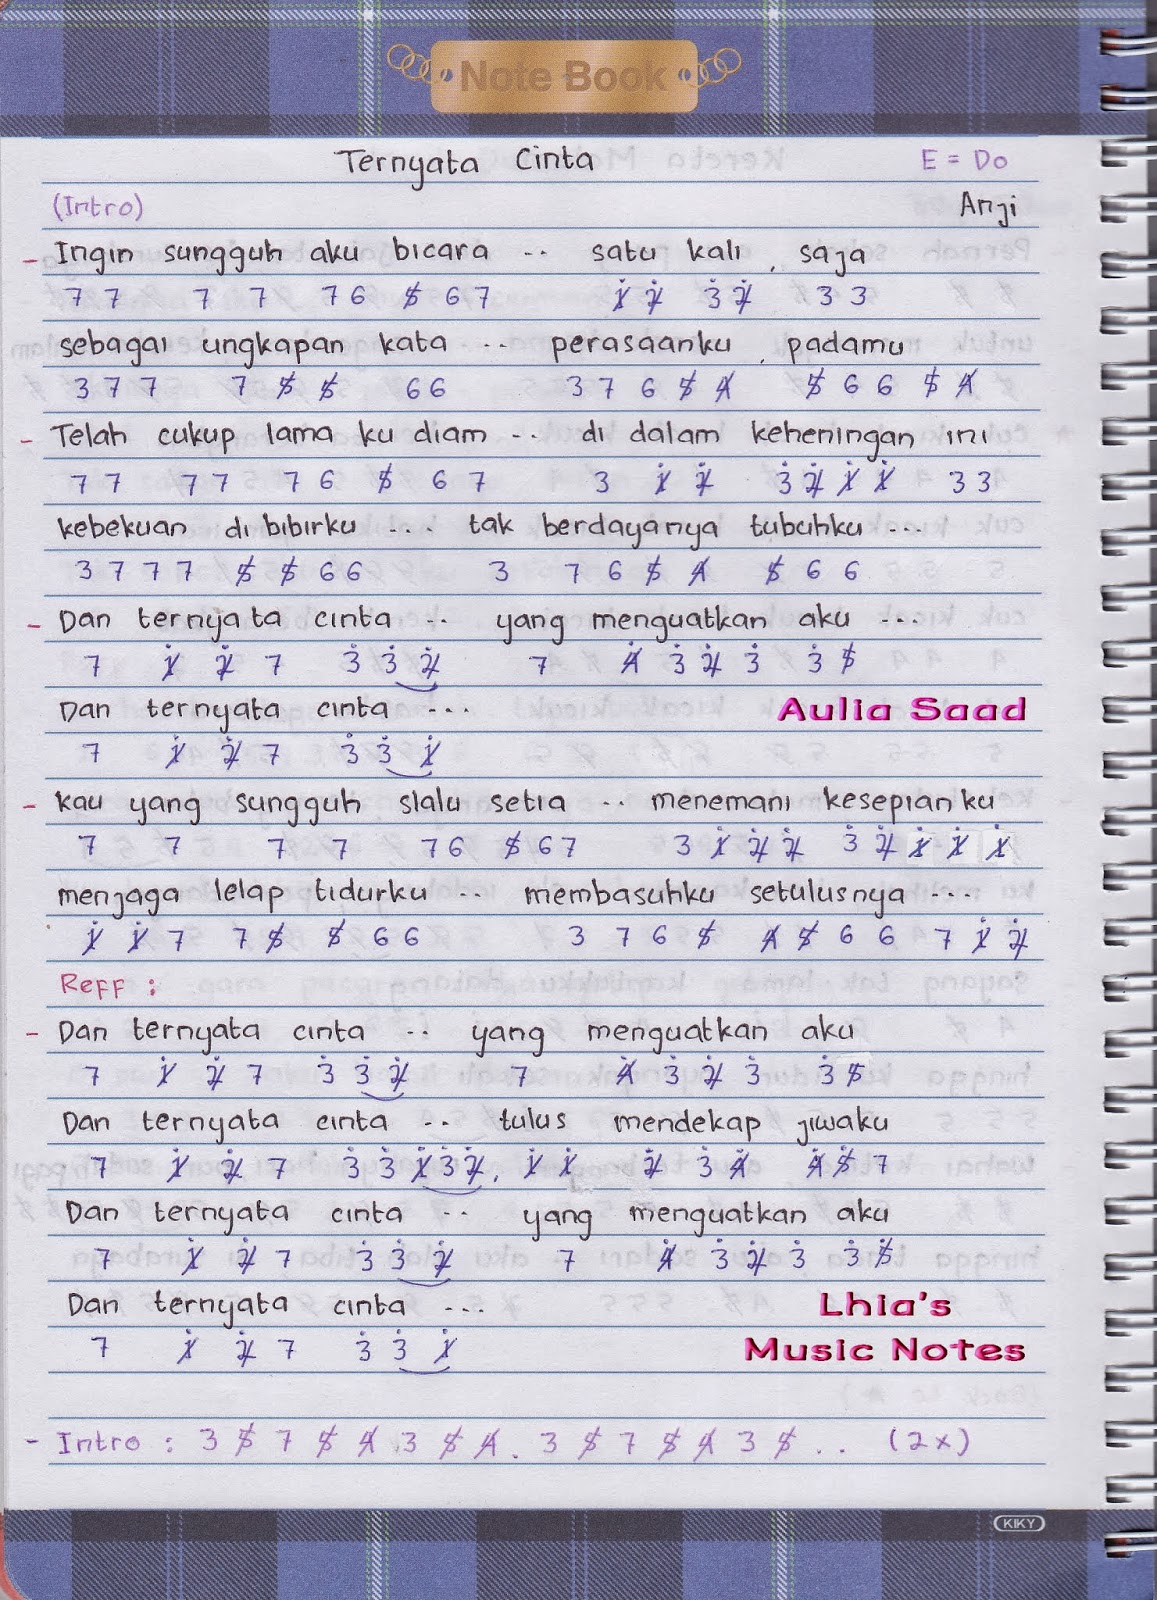 Note Book
Ternyata Cinta E = Do
(Intro) Anji
- Ingin sungguh aku bicara .. satu kali , saja
7 7 7 7 7 6 5̸ 6 7 1̸̇ 2̸̇ 3̇ 2̸̇ 3 3
sebagai ungkapan kata ... perasaanku , padamu
3 7 7 7 5̸ 5̸ 6 6 3 7 6 5̸ 4̸ 5̸ 6 6 5̸ 4̸
- Telah cukup lama ku diam ... di dalam keheningan ini
7 7 7 7 7 6 5̸ 6 7 3 1̸̇ 2̸̇ 3̇ 2̸̇ 1̸̇ 1̸̇ 3 3
kebekuan dibibirku ... tak berdayanya tubuhku ...
3 7 7 7 5̸ 5̸ 6 6 3 7 6 5̸ 4̸ 5̸ 6 6
- Dan ternyata cinta .. yang menguatkan aku ...
7 1̸̇ 2̸̇ 7 3̇ 3̇ 2̸̇ 7 4̸̇ 3̇ 2̸̇ 3̇ 3̇ 5̸
Dan ternyata cinta ... Aulia Saad
7 1̸̇ 2̸̇ 7 3̇ 3̇ 1̸̇
- kau yang sungguh slalu setia .. menemani kesepianku
7 7 7 7 7 6 5̸ 6 7 3 1̸̇ 2̸̇ 2̸̇ 3̇ 2̸̇ 1̸̇ 1̸̇ 1̸̇
menjaga lelap tidurku ... membasuhku setulusnya ...
1̸̇ 1̸̇ 7 7 5̸ 5̸ 6 6 3 7 6 5̸ 4̸ 5̸ 6 6 7 1̸̇ 2̸̇
Reff :
- Dan ternyata cinta .. yang menguatkan aku
7 1̸̇ 2̸̇ 7 3̇ 3̇ 2̸̇ 7 4̸̇ 3̇ 2̸̇ 3̇ 3̇ 5̸
Dan ternyata cinta ... tulus mendekap jiwaku
7 1̸̇ 2̸̇ 7 3̇ 3̇ 1̸̇ 3̇ 2̸̇ , 1̸̇ 1̸̇ 2̸̇ 3̇ 4̸̇ 4̸̇ 5̸ 7
Dan ternyata cinta .. yang menguatkan aku
7 1̸̇ 2̸̇ 7 3̇ 3̇ 2̸̇ 7 4̸̇ 3̇ 2̸̇ 3̇ 3̇ 5̸̇
Dan ternyata cinta ... Lhia's
7 1̸̇ 2̸̇ 7 3̇ 3̇ 1̸̇ Music Notes
- Intro : 3 5̸ 7 5̸ 4̸ 3 5̸ 4̸ . 3 5̸ 7 5̸ 4̸ 3 5̸ . . (2x)
KIKY